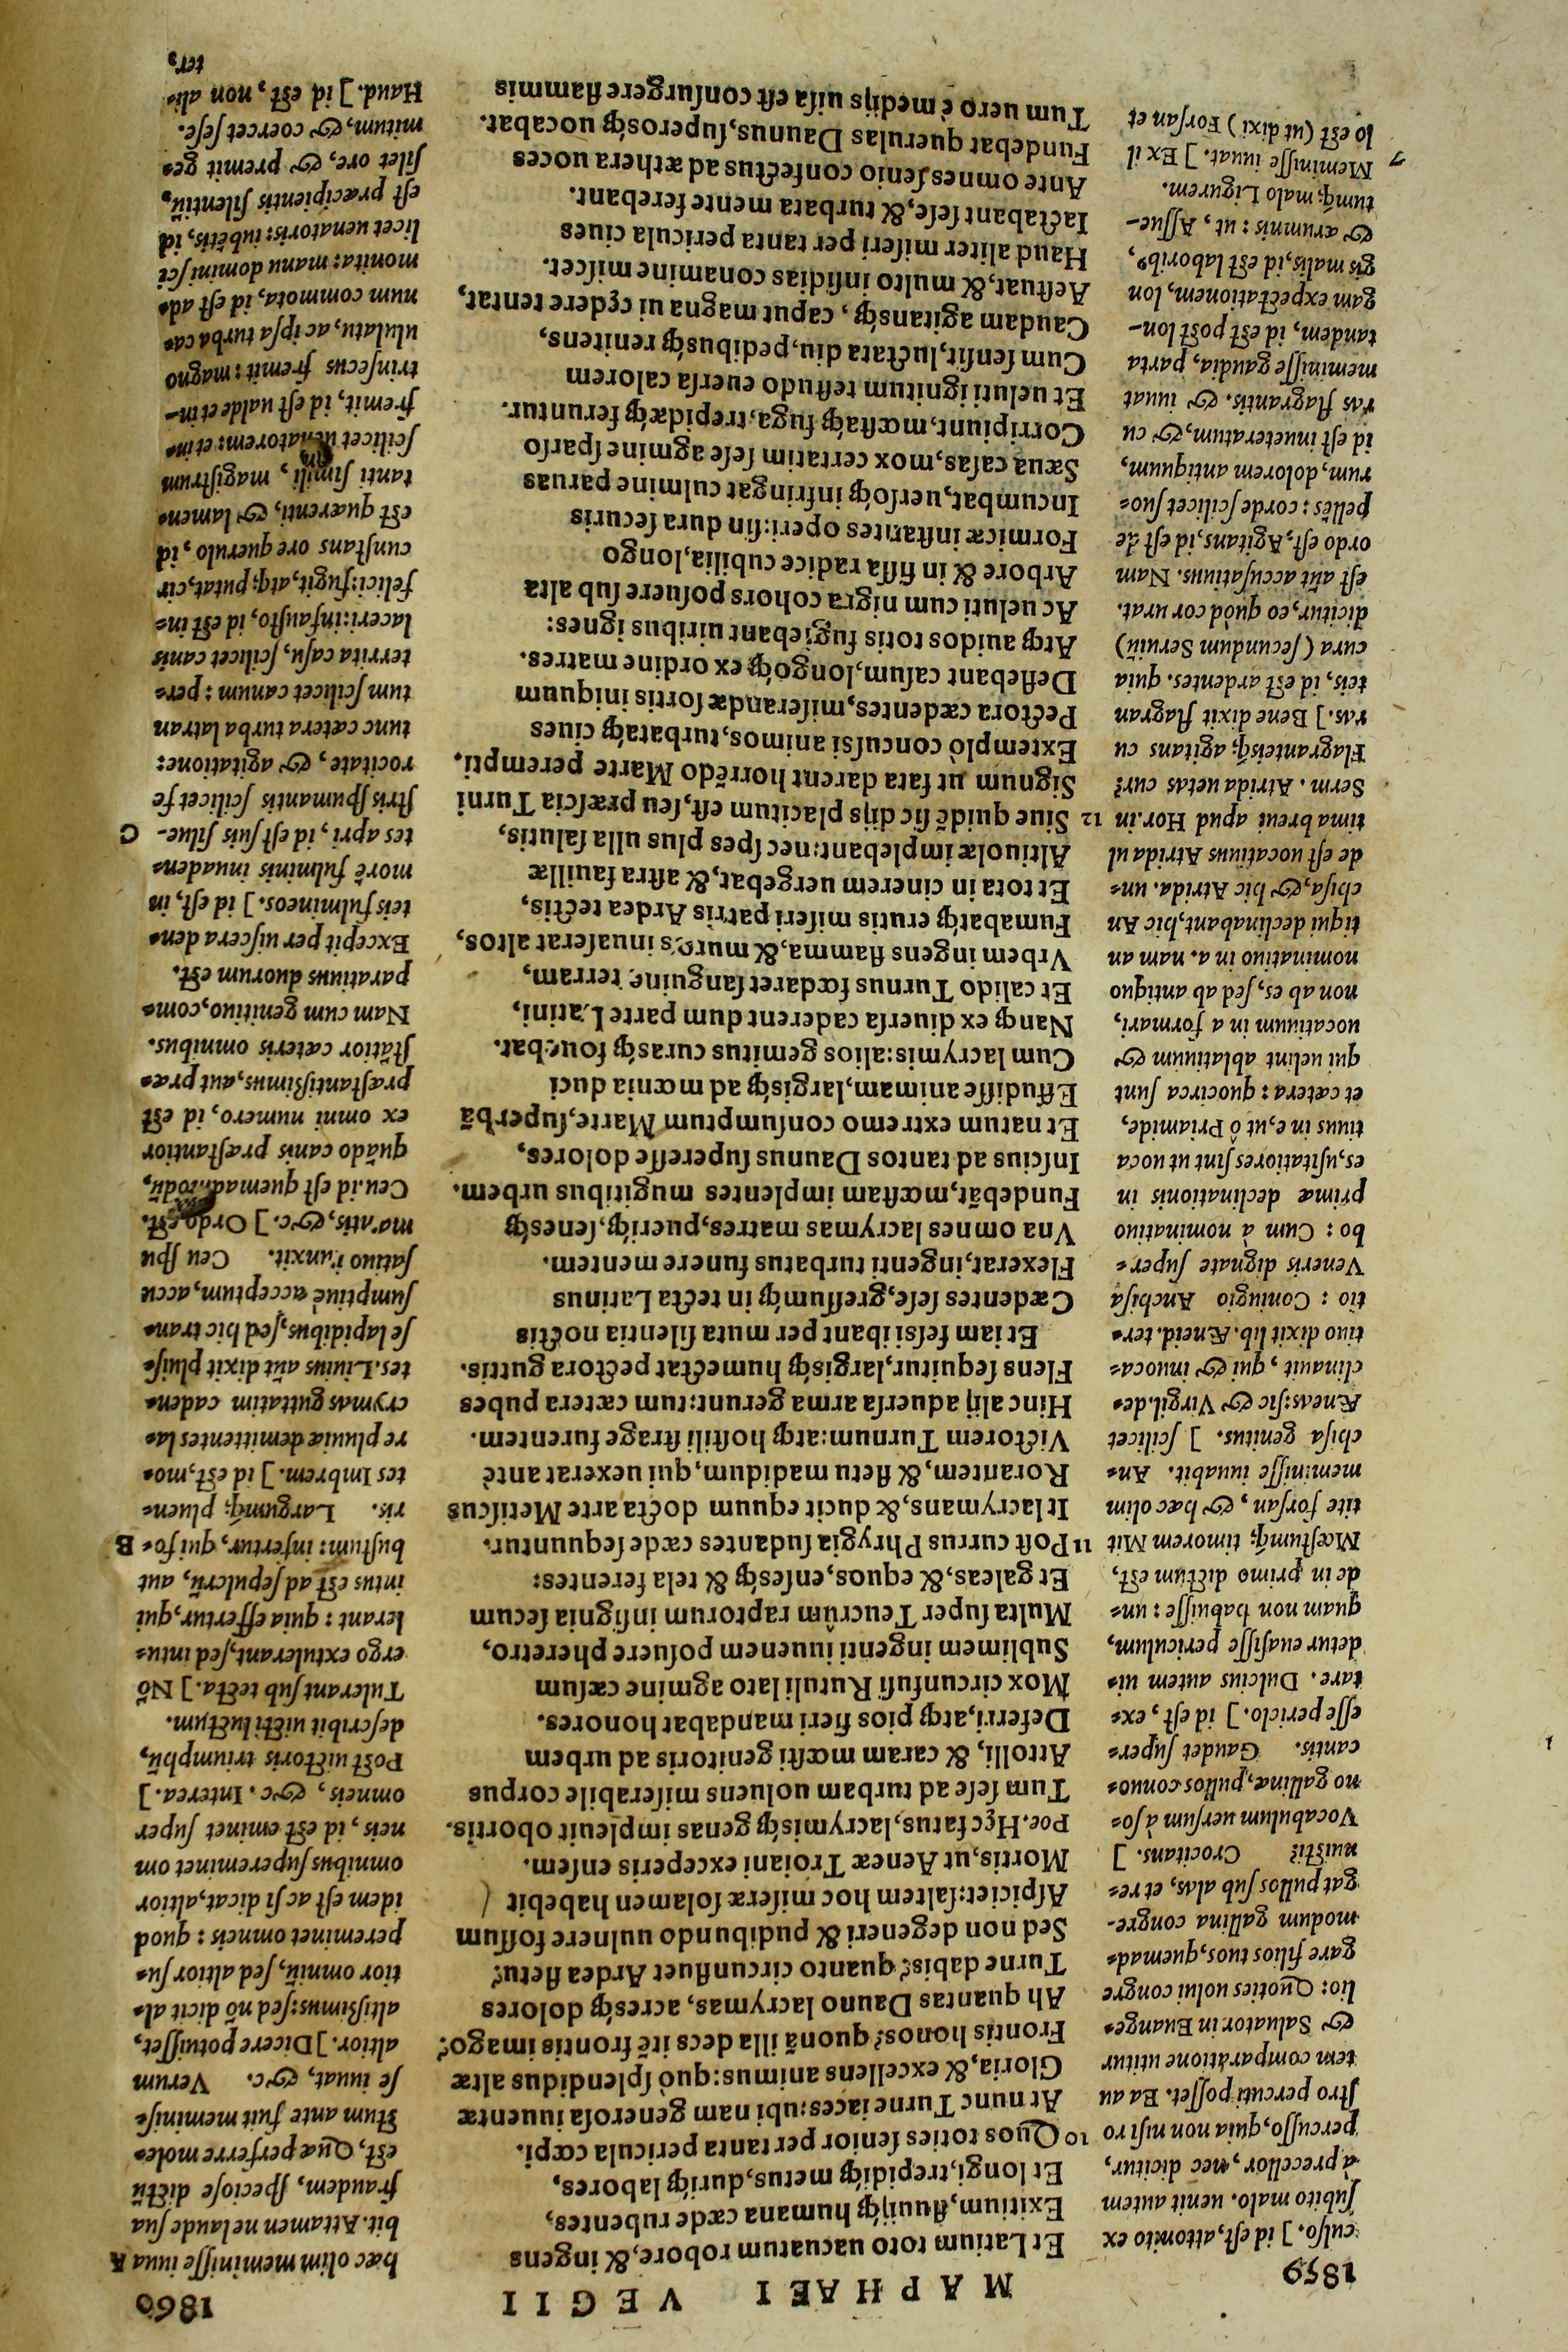 1859
MAPHAEI VEGII
1860
culso.] id est, attonito ex
subito malo. uenit autem
à precellor, nec dicitur,
percusso, quia non nisi ro
stro percuti posset. Ea au
tem comparatione utitur
& Saluator in Euange-
lio: Quoties uolui congre
gare filios tuos, quemad-
modum gallina congre-
gat pullos sub alas, et re-
nuisti? Crocitans. ]
Vocabulum uersum à so-
no gallinæ, pullos conuo-
cantis. Gaudet super-
esse periclo.] id est, ex-
tare. Dulcius autem ui-
detur euasisse periculum,
quam non habuisse: un-
de in primo dictum est,
Mœstumq; timorem Mit
tite forsan, & hæc olim
meminisse iuuabit. An-
chisa genitus. ] scilicet
Æneas: sic & Virgil. de-
clinauit, qui & in uoca-
tiuo dixit lib. Æneid. ter-
tio: Coniugio Anchisa
Veneris dignate super-
bo: Cum à nominatiuo
primæ declinationis in
es, usitatiores sint ut uoca
tiuus in e, ut ô Priamide,
et cætera: quocirca sunt
qui uelint ablatiuum &
uocatiuum in a formari,
non ab es, sed ab antiquo
nominatiuo in a. nam an
tiqui declinabant, hic An
chisa, & hic Atrida. un-
de est uocatiuus Atrida ul
tima breui apud Hor. in
Serm. Atrida uetas cur?
Flagranteisq; agitans cu
ras.] Bene dixit flagran
teis, id est ardentes. quia
cura (secundum Seruiū)
dicitur, eo quòd cor urat.
est aūt accusatiuus. Nam
ordo est, Agitans, id est de
pellēs: corde scilicet suo-
rum, dolorem antiquum,
id est inueteratum, & cu
ras flagrantis. & iuuat
meminisse gaudia, parta
tandem, id est post lon-
gam expectationem, lon
gis malis, id est laborib⁹,
& ærumnis: ut, Assue-
tumq; malo Ligurem.
Meminisse iuuat.] Ex il
lo est (ut dixi) Forsan et
Et Latium toto uacuatum robore, & ingens
Exitium, fluuijq́ȝ humana cæde rubentes,
Et longi, trepidiq́ȝ metus, duriq́ȝ labores,
10 Quos toties senior per tanta pericula cœpi.
At nunc Turne iaces: ubi nam generosa iuuentæ
Gloria, & excellens animus: quò splendidus altæ
Frontis honos? quonā illa decs itē frontis imago?
Ah quantas Dauno lacrymas, acresq́ȝ dolores
Turne dabis? quanto circunfluet Ardea fletu?
Sed non degeneri & pudibundo uulnere fossum
Aspiciet: saltem hoc miseræ solamen habebit
Mortis, ut Aeneæ Troiani exceperis ensem.
Poe. Hęc fatus, lacrymisq́ȝ genas impleuit obortis.
Tum sese ad turbam uoluens miserabile corpus
Attolli, & caram mœsti genitoris ad urbem
Deferri, atqȝ pios fieri mandabat honores.
Mox circunfusi Rutuli lato agmine cæsum
Sublimem ingenti iuuenem posuere pheretro,
Multa super Teucrûm raptorum insignia secum
Et galeas, & equos, ensesq́ȝ & tela ferentes:
11 Post currus Phrygia sudantes cæde sequuntur.
It lacrymans, & ducit equum docta arte Metiscus
Rorantem, & fletu madidum, qui uexerat antè
Victorem Turnum: atqȝ hostili strage furentem.
Hinc alij aduersa arma gerunt: tum cætera pubes
Flens sequitur, largisq́ȝ humectat pectora guttis.
Et iam fessi ibant per muta silentia noctis
Cædentes sese, gressumq́ȝ in tecta Latinus
Flexerat, ingenti turbatus funere mentem.
Vna omnes lacrymas matres, pueriq́ȝ, senesq́ȝ
Fundebāt, mœstam implentes mugitibus urbem.
Inscius ad tantos Daunus superesse dolores,
Et natum extremo consumptum Marte, superbā
Effudisse animam, largisq́ȝ ad mœnia duci
Cum lacrymis: alios gemitus curasq́ȝ fouebat.
Nanqȝ ex diuersa caderent dum parte Latini,
Et calido Turnus fœdaret sanguine terram,
Vrbem ingens flamma, & muros inuaserat altos,
Fumabatq́ȝ erutis miseri patris Ardea tectis,
Et tota in cinerem uergebat, & astra fauillæ
Altiuolæ implebant: nec spes plus ulla salutis,
12 Siue quidē sic dijs placitum est, seu præscia Turni
Signum ut fata darent horrēdo Marte perempti.
Extemplò concussi animos, turbataq́ȝ ciues
Pectora cædentes, miserandæ sortis iniquum
Deflebant casum, longoq́ȝ ex ordine matres.
Atqȝ auidos totis fugiebant uiribus ignes:
Ac ueluti cum nigra cohors posuere sub alta
Arbore & in fissa radice cubilia, longo
Formicæ instantes operi: sin dura securis
Incumbat, uersoq́ȝ infringat culmine paruas
Sæua casas, mox certatim sese agmine sparso
Corripiunt, mœstaq́ȝ fuga, trepidæq́ȝ feruntur.
Et ueluti ignitum testudo euersa calorem
Cum sensit, luctata diu, pedibusq́ȝ renitens,
Caudam agitansq́ȝ, caput magna ui cędere tentat,
Aestuat, & multo insidias conamine miscet.
Haud aliter miseri per tanta pericula ciues
Iactabant sese, & turbata mente ferebant.
Ante omnes senio confectus ad æthera uoces
Fundebat querulas Daunus, superosq́ȝ uocabat.
Tum uero è medijs uisa est consurgere flammis
hæc olim meminisse iuua A
bit. Attamen ne laude sua
fraudem, speciose dictū
est, Quæ perferre moles-
stum ante fuit meminis-
se iuuat, &c. Verum
altior.] Dicere potuisset,
altissimus: sed nō dicit al-
tior omniū, sed altior su-
pereminet omneis: quod
idem est ac si dicat, altior
omnibus supereminet om
neis, id est eminet super
omneis, &c. Interea.]
Post uictoris triumphū,
describit uicti luctum.
Tulerant sub tecta.] Nō
ergo extulerant, sed intu-
lerant: quia effertur, qui
intus est ad sepulcrū, aut
bustum: infertur, qui fo- B
ris. Largumq; pluen-
tes Imbrem.] id est, mo-
re pluuiæ demittentes la-
crymas guttatim caden-
tes. Liuius aūt dixit pluis-
se lapidibus, sed hic tran-
sumptiuè acceptum, accu
satiuo iunxit. Ceu spu
mantis, &c.] Ordo est.
Ceu. id est quemadmodū,
quādo canis præstantior
ex omni numero, id est
præstantissimus, aut præ-
stātior cæteris omnibus.
Nam cum genitiuo, com-
paratiuus duorum est.
Excepit per uiscera den-
teis fulmineos.] id est, in
morē fulminis inuaden-
tes apri, id est suis silue- C
stris spumantis scilicet fe
rocitate, & agitatione:
tunc cætera turba latran
tum scilicet canum: per-
territa casu, scilicet canis
laceri: infausto, id est in-
felici: fugit, atq; putat, cir
cunstans ore querulo, id
est quærenti, & lamen-
tanti simili, magistrum
scilicet uenatorem: et in-
fremit, id est ualde et in-
trinsecus fremit: magno
ululatu, ac ipsa turba ca-
num commota, id est ad-
monita: manu domini sci
licet uenatoris: iubētis, id
est præcipientis silentiū,
silet ore, & premit ge-
mitum, & coercet sese.
Haud.] id est, non ali-
ter,